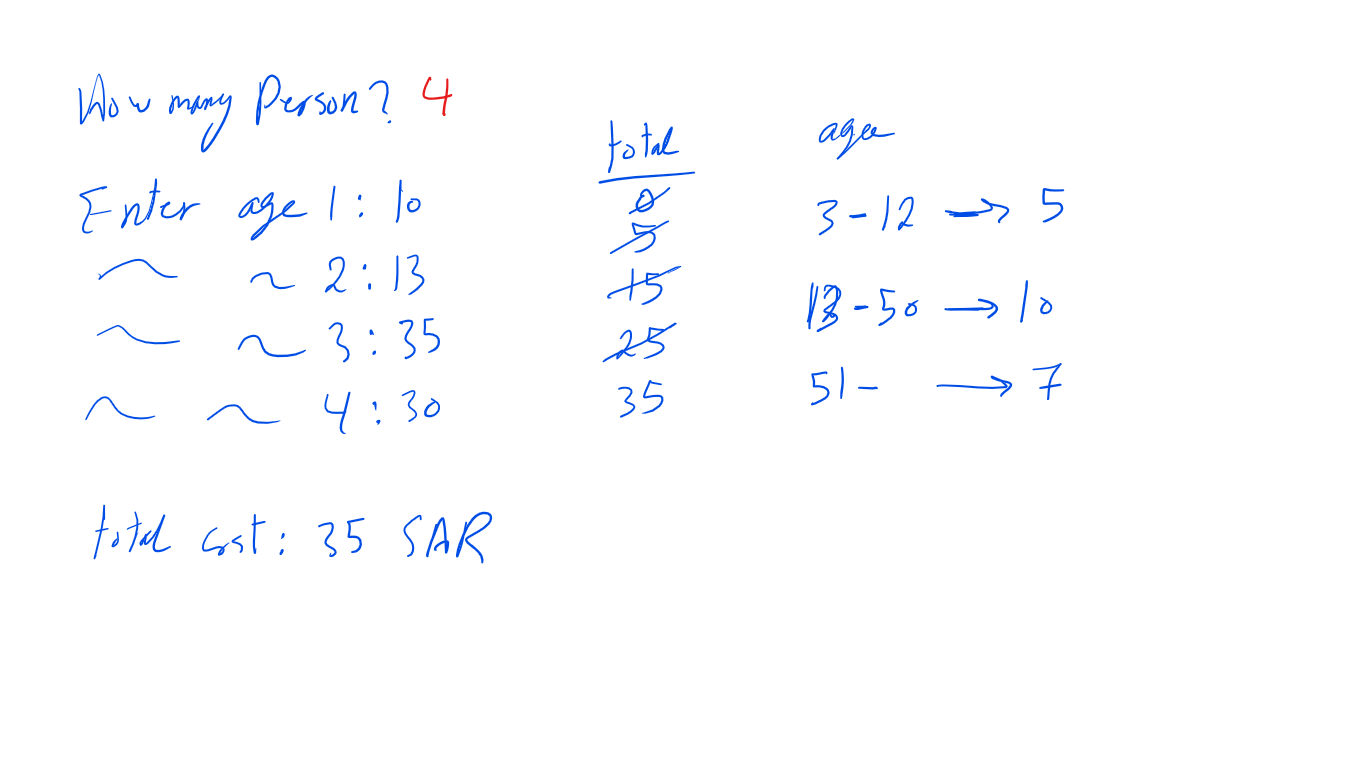 How many Person? 4
Enter age 1: 10
~ ~ 2: 13
~ ~ 3: 35
~ ~ 4: 30
total cost: 35 SAR
total
0
5
15
25
35
age
3-12 → 5
13-50 → 10
51- → 7